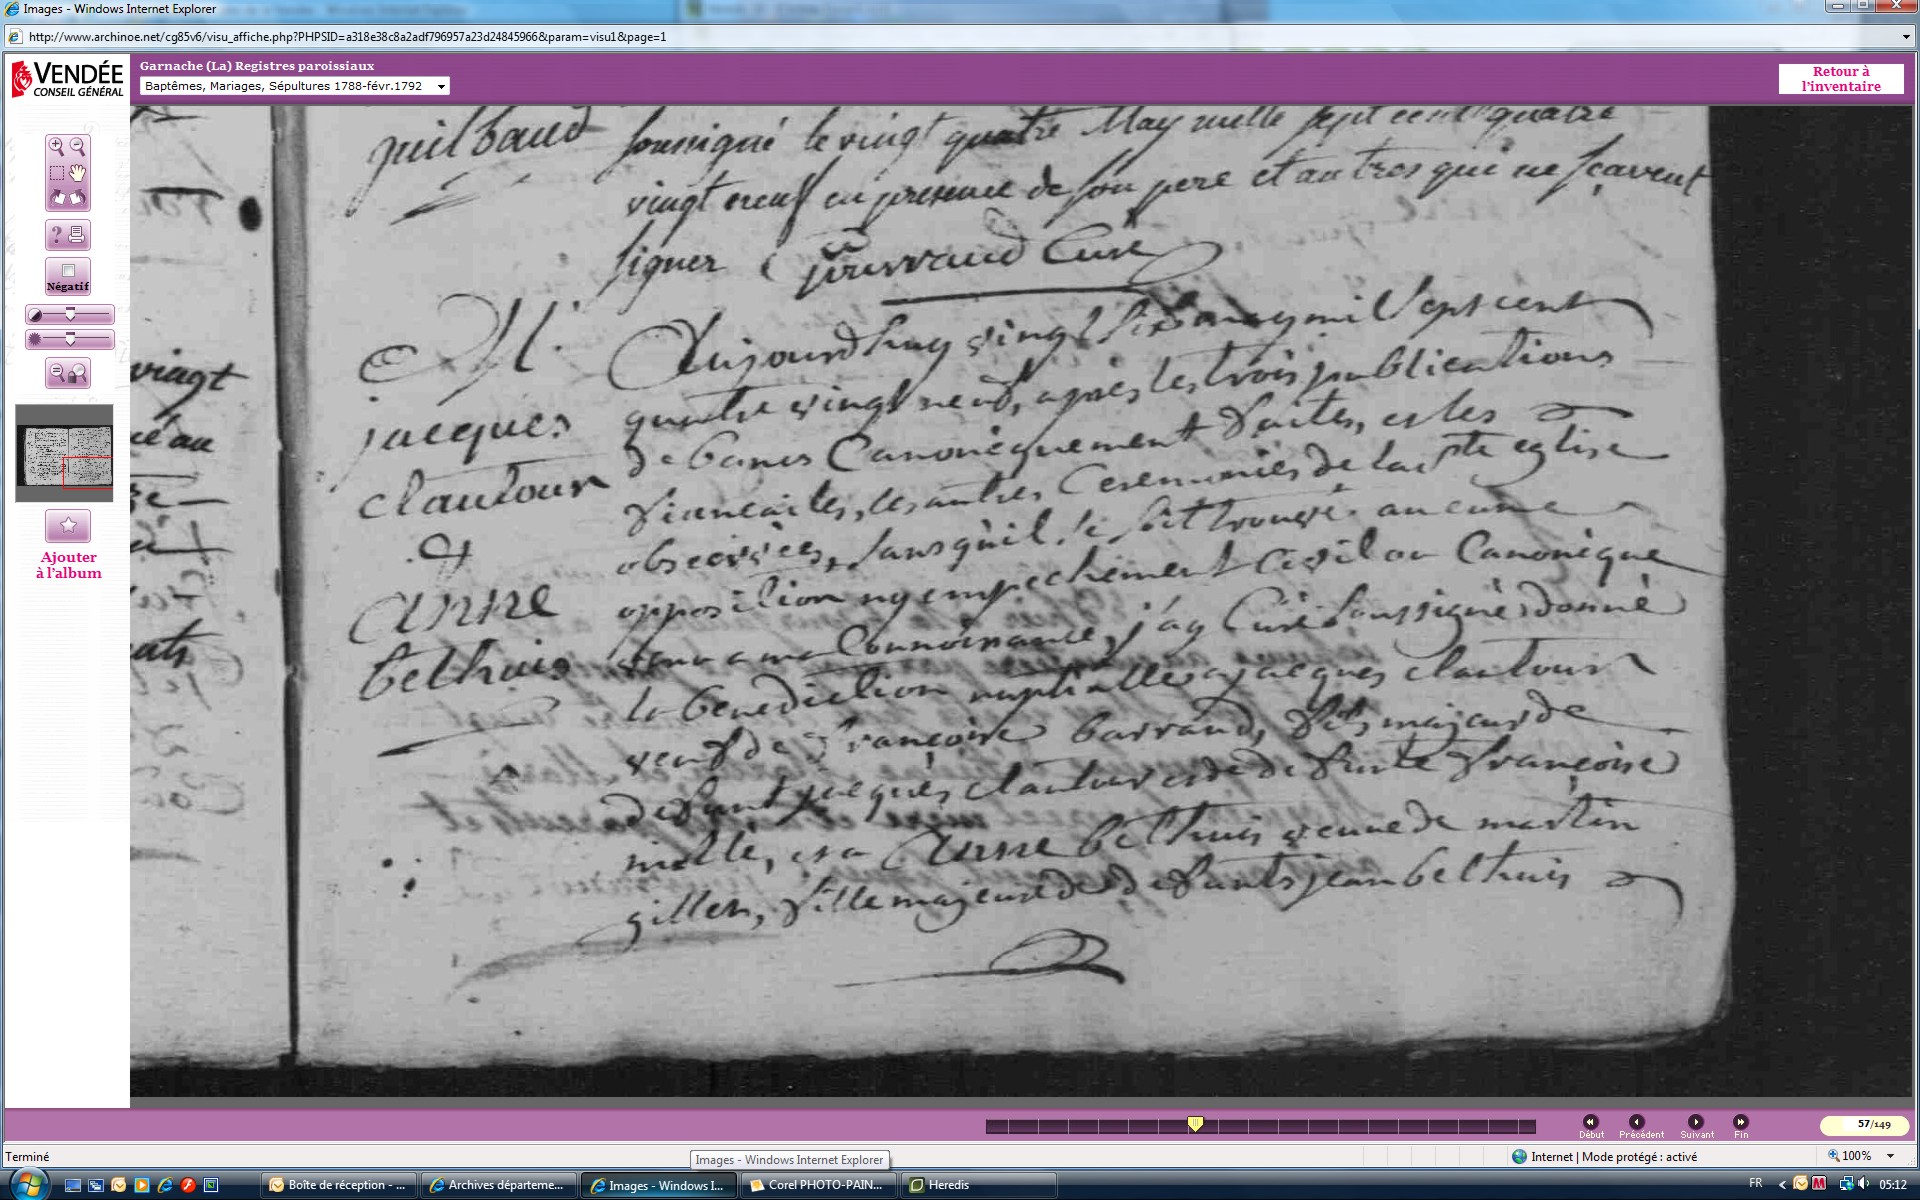 Images - Windows Internet Explorer
http://www.archinoe.net/cg85v6/visu_affiche.php?PHPSID=a318e38c8a2adf796957a23d24845966&param=visu1&page=1
VENDÉE
CONSEIL GÉNÉRAL
Garnache (La) Registres paroissiaux
Baptêmes, Mariages, Sépultures 1788-févr.1792
Retour à
l'inventaire
Négatif
Ajouter
à l'album
vingt
guilbaud
soussigné le vingt quatre May mille sept cent quatre
vingt neuf en presence de son pere et autres qui ne sçavent
signer Curé
M.
jacques
clautour
&
anne
bethuis
Aujourdhuy vingt six may mil sept cent
quatre vingt neuf, après les trois publications
de bancs Canoniquement faites, et les
fiancailles, les autres Ceremonies de la ste eglise
observées, sans qu'il se soit trouvé aucune
opposition ny empechement Civil ou Canonique
venu a ma Connoissance, j'ay Curé soussigné donné
la benediction nuptialle a jacques clautour
veuf de Françoise barraud, fils majeur de
defunt jacques clautour et de defunte Françoise
mollé, et a Anne bethuis veuve de martin
gillen, fille majeure de defunts jean bethuis
Début
Précédent
Suivant
Fin
57/149
Terminé
Images - Windows Internet Explorer
Internet | Mode protégé : activé
100%
Boîte de réception - ...
Archives départeme...
Images - Windows I...
Corel PHOTO-PAIN...
Heredis
FR
05:12